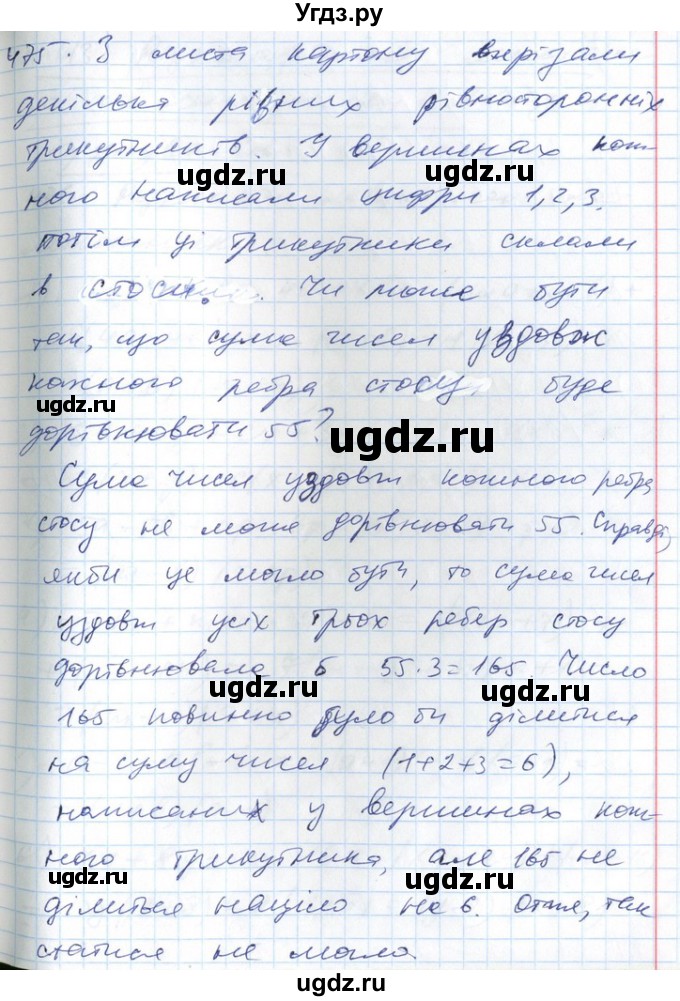 Угдз.ру
475. З листа картону вирізали
декілька рівних рівносторонніх
трикутників. У вершинах кож-
ugdz.ru ugdz.ru
ного написали цифри 1, 2, 3.
потім ці трикутники склали
в стоси. Чи може бути
так, що сума чисел уздовж
кожного ребра стосу, буде
ugdz.ru
дорівнювати 55?
ugdz.ru
Сума чисел уздовж кожного ребра
стосу не може дорівнювати 55. Справді,
якби це могло бути, то сума чисел
уздовж усіх трьох ребер стосу
дорівнювала б 55·3=165. Число
ugdz.ru ugdz.ru
165 повинно було би ділитися
на суму чисел (1+2+3=6),
написаних у вершинах кож-
ного трикутника, але 165 не
ugdz.ru
ділиться націло на 6. Отже, так
ugdz.ru
статися не могло.
ugdz.ru